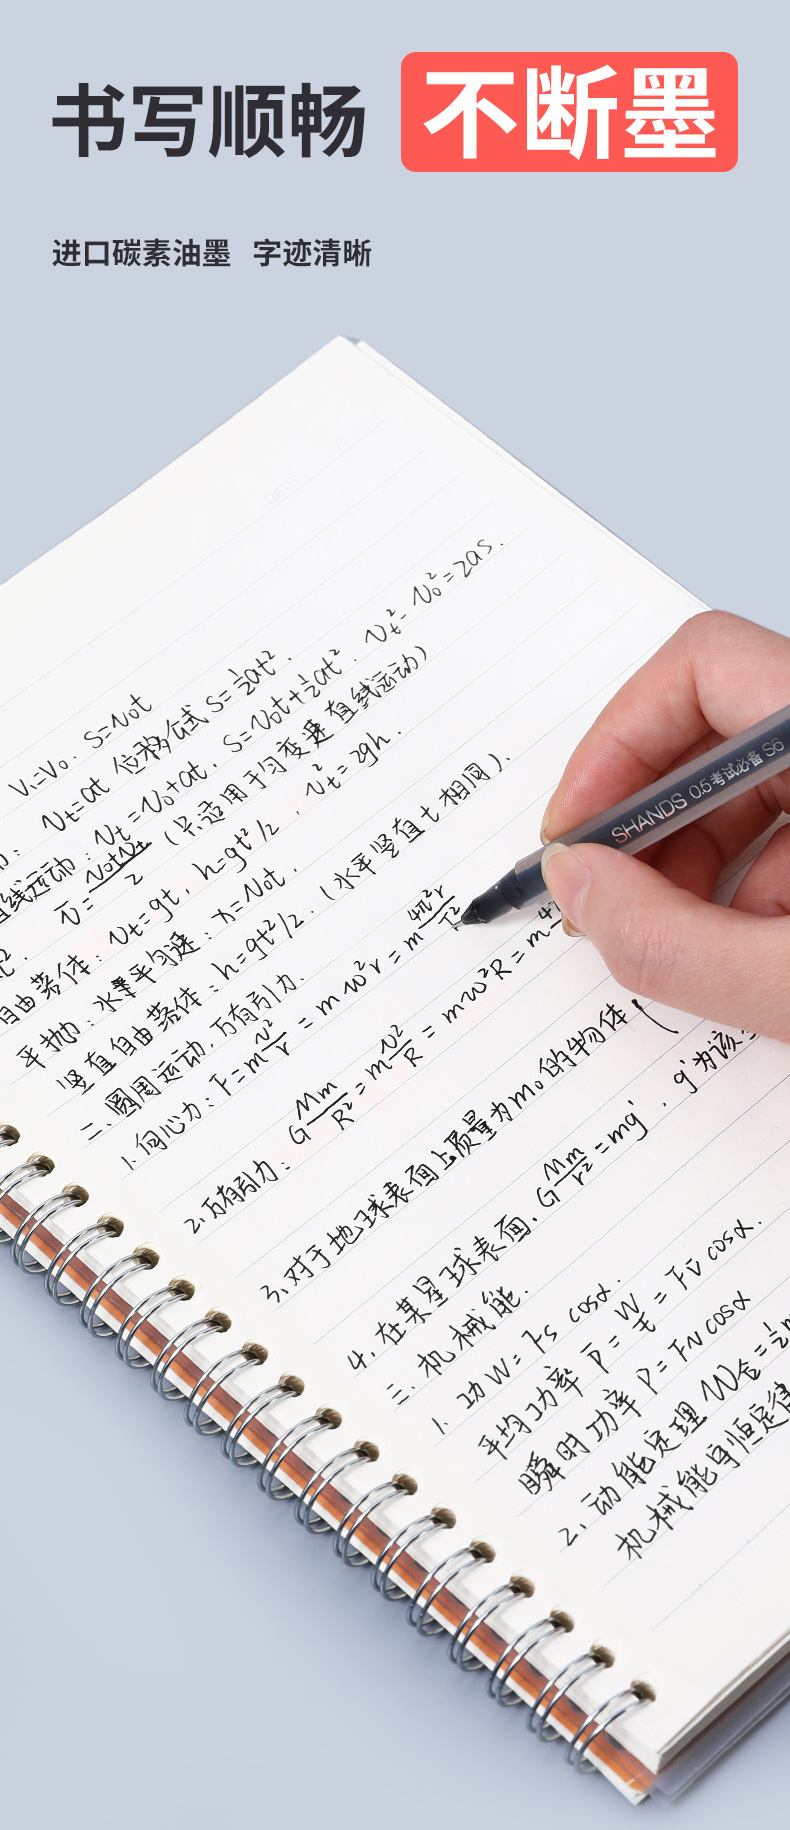 书写顺畅 不断墨
进口碳素油墨 字迹清晰
DATE
V₁=V₀. S=V₀t
Vt=at 位移公式 S=½at².
直线运动：Vt=V₀+at. S=V₀t+½at². Vt²-V₀²=2as.
V̄=(V₀+Vt)/2 （只适用于匀变速直线运动）
自由落体：Vt=gt. h=gt²/2. Vt²=2gh.
平抛：水平匀速：x=V₀t.
竖直自由落体：h=gt²/2.（水平竖直t相同）.
二、圆周运动.万有引力.
1.向心力：F=m v²/r = mw²r = m 4π²r/T²
2.万有引力：G Mm/R² = m v²/R = mw²R = m
3.对于地球表面上质量为m₀的物体（
4.在某星球表面. G Mm/r² = mg'. g'为该
三.机械能.
1.功 W=Fs cosα.
平均功率 P̄= W/t = Fv̄ cosα.
瞬时功率 P=Fv cosα
2、动能定理 W合=½m
机械能守恒定律
SHANDS 0.5 考试必备 S6